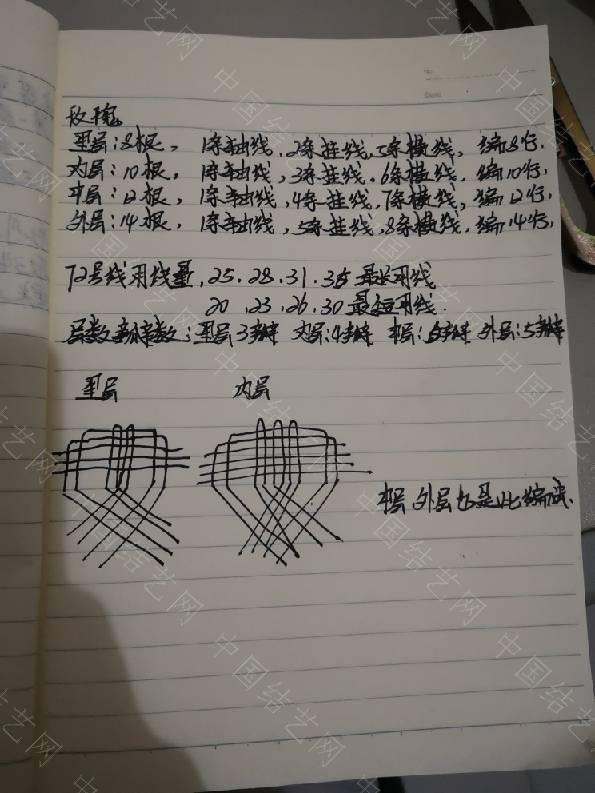 玫瑰
里层:8根,1条轴线,2条挂线,5条横线,编8行,
内层:10根,1条轴线,3条挂线,6条横线,编10行,
中层:12根,1条轴线,4条挂线,7条横线,编12行,
外层:14根,1条轴线,5条挂线,8条横线,编14行,
72号线用线量,25.28.31.35最长用线
20.23.26.30最短用线
层数 瓣数:里层3瓣 内层:4瓣 中层:5瓣 外层:5瓣
里层 内层
中层 外层也是此编法.
中国结艺网